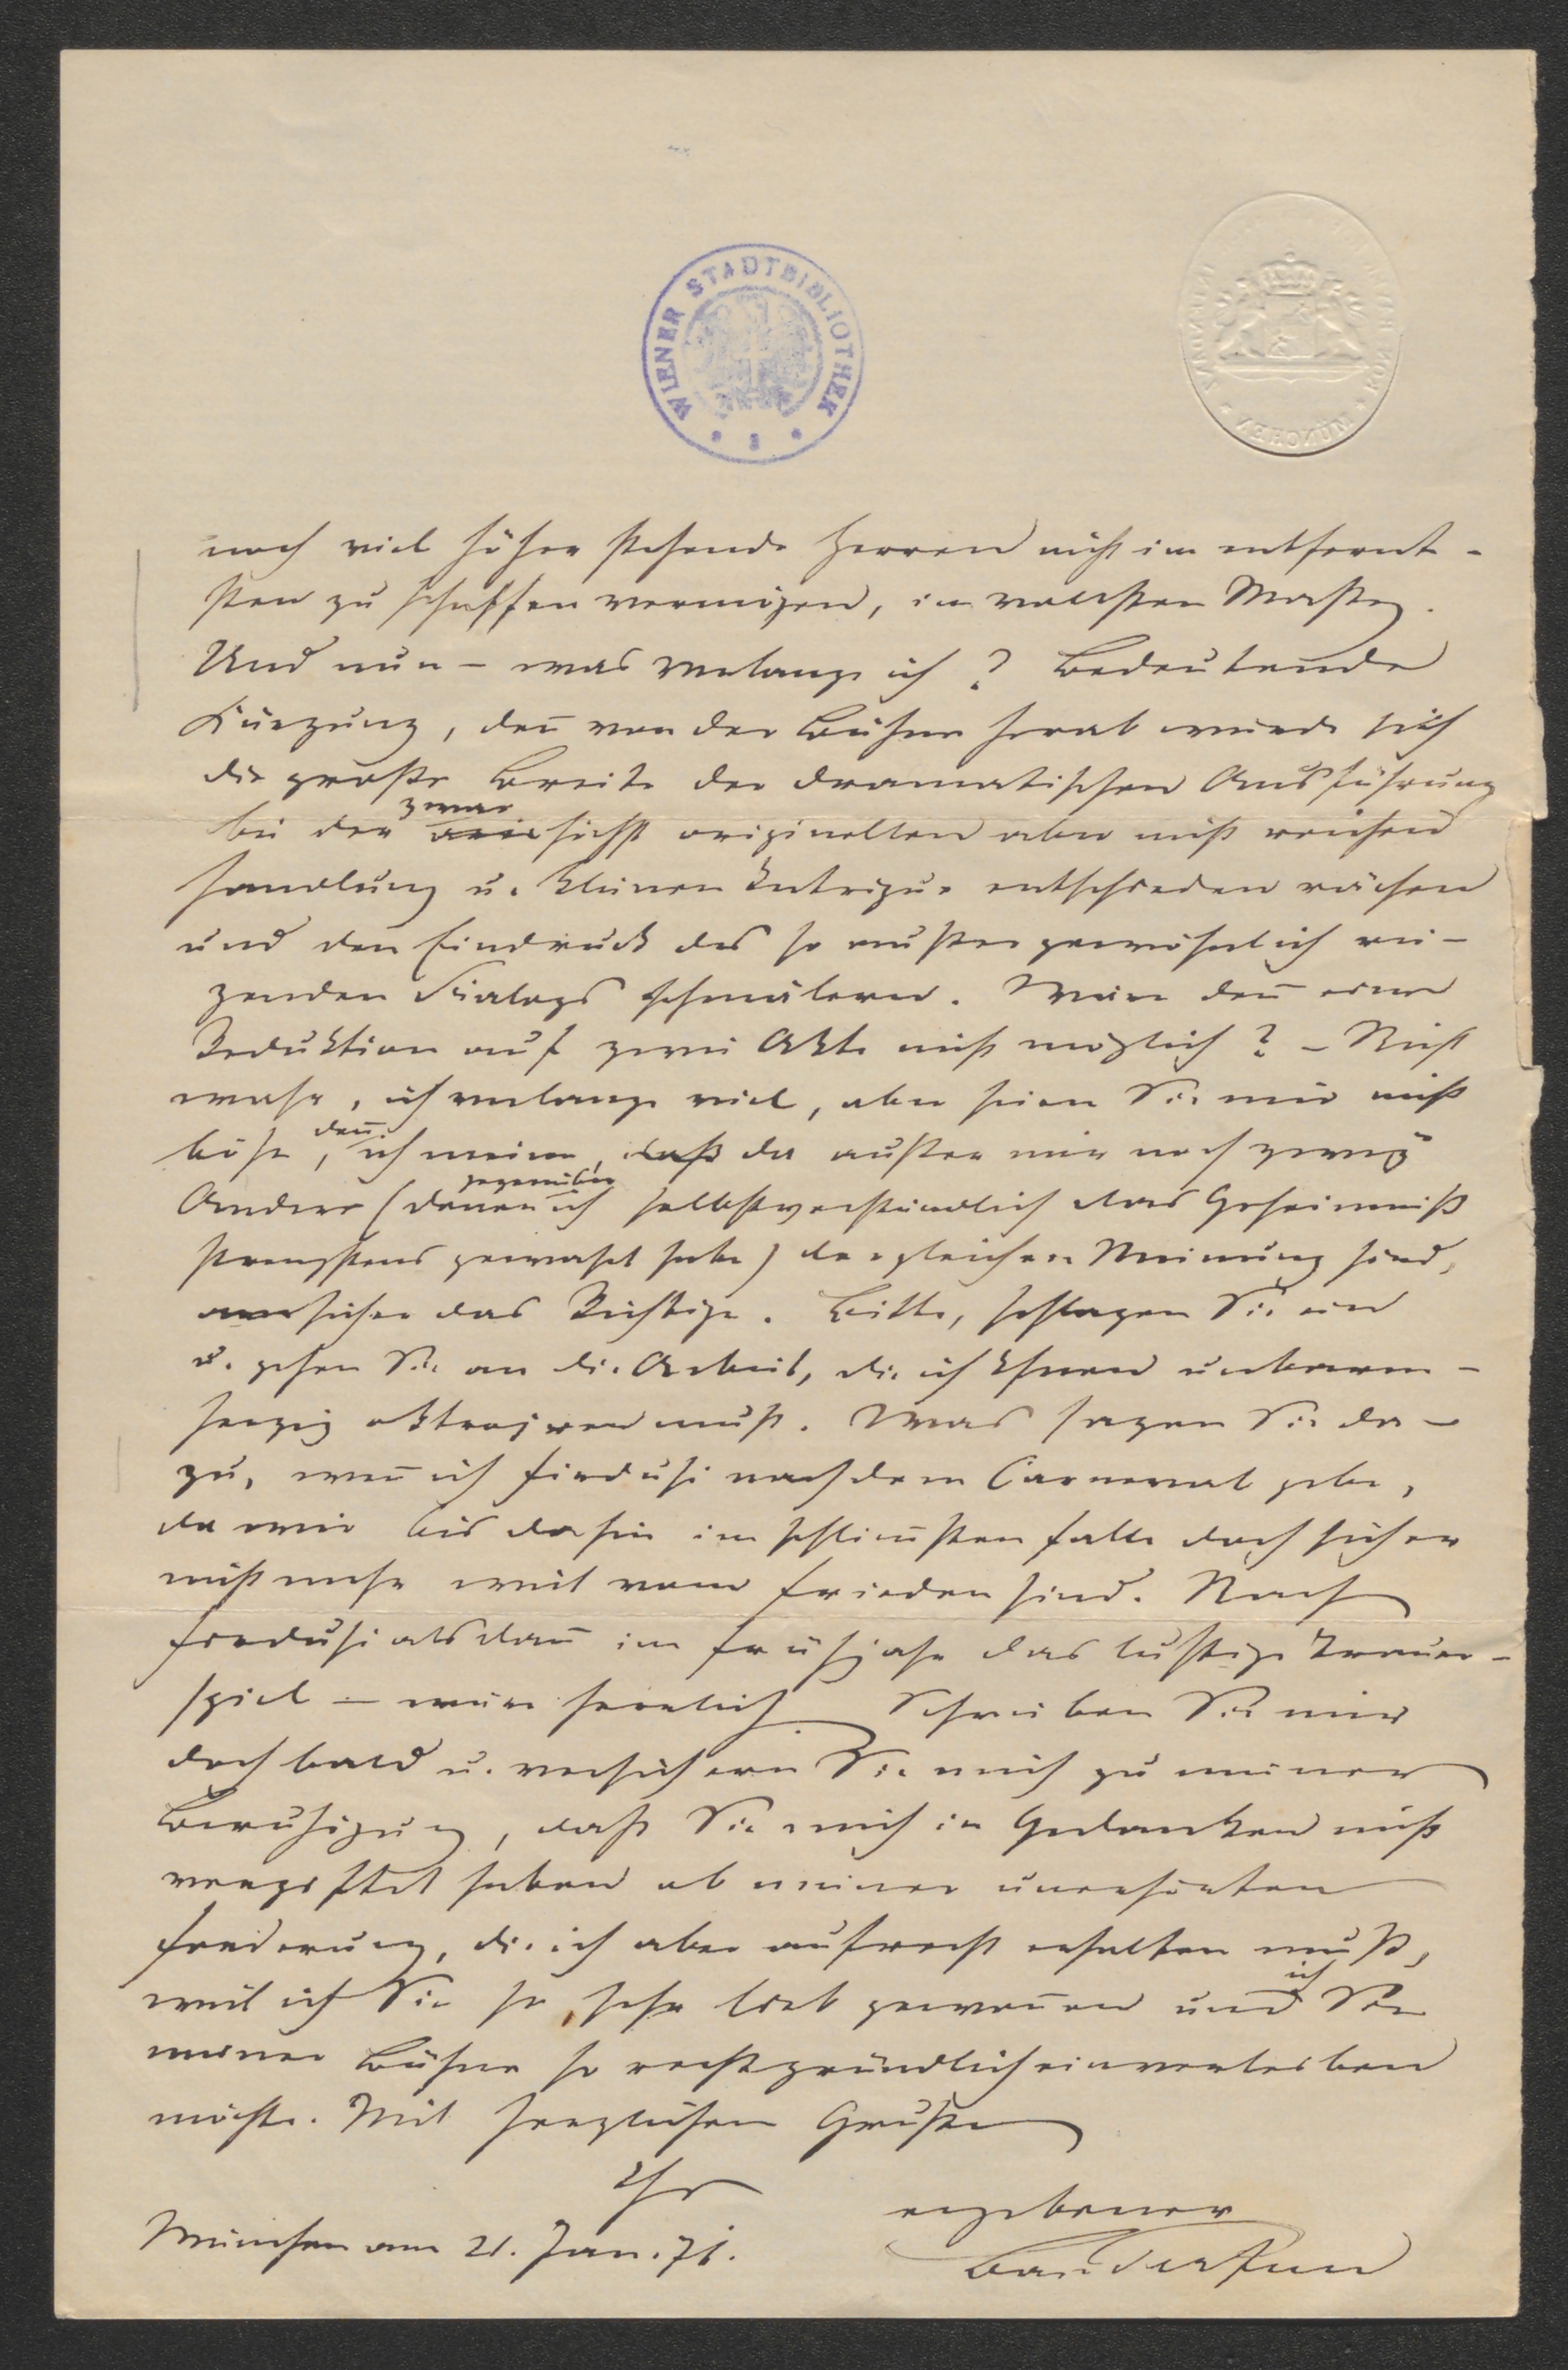 WIENER STADTBIBLIOTHEK
MÜNCHEN
noch viel höher stehende Herren nicht im entfernt-
sten zu schaffen vermögen, im vollsten Maße.
Und nun – was verlange ich? Bedeutende
Kürzung, deñ von der Bühne herab würde sich
die große Breite der dramatischen Ausführung
zwar
bei der höchst originellen aber nicht reichen
Handlung u. kleinen Intrigue entschieden rächen
und den Eindruck des so außergewöhnlich rei-
zenden Dialogs schmälern. Wäre deñ eine
Reduktion auf zwei Akte nicht möglich? – Nicht
wahr, ich verlange viel, aber seien Sie mir nicht
deñ
böse, ich meine, daß da außer mir noch zwei
gegenüber
Andere (denen ich selbstverständlich das Geheimniß
strengstens gewahrt habe) der gleichen Meinung sind,
sicher das Richtige. Bitte, schlagen Sie ein
u. gehen Sie an die Arbeit, die ich Ihnen unbarm-
herzig oktroyren muß. Was sagen Sie da-
zu, weñ ich Firdusi nach dem Carneval gebe,
da wir bis dahin im schlim̄sten Falle doch sicher
nicht mehr weit vom Frieden sind. Nach
Firdusi alsdañ im Frühjahr das lustige Trauer-
spiel – wäre herrlich. Schreiben Sie mir
doch bald u. versichern Sie mich zu meiner
Beruhigung, daß Sie mich in Gedanken nicht
vergiftet haben ob meiner unerhörten
Forderung, die ich aber aufrecht erhalten muß,
ich
weil ich Sie so sehr lieb gewoñen und Sie
meiner Bühne so recht gründlich einverleiben
möchte. Mit herzlichem Gruße
Ihr
ergebener
München am 21. Jan. 71.